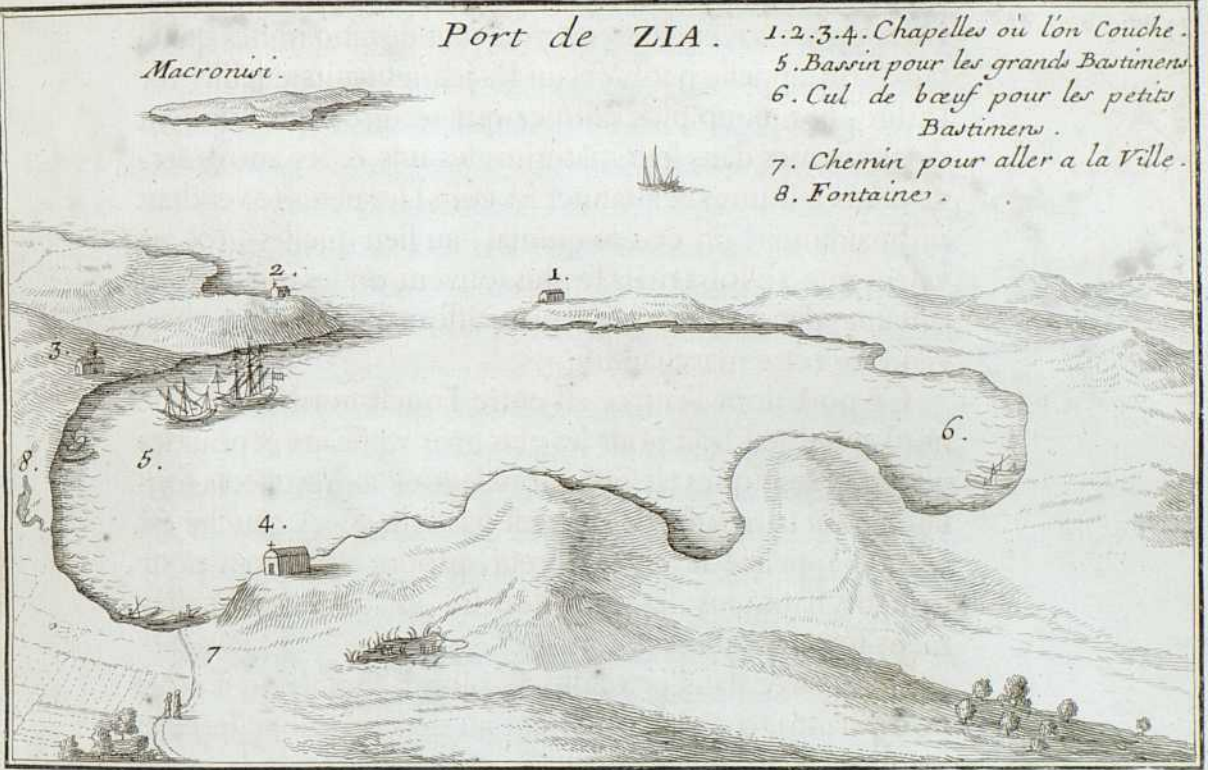 Port de ZIA.
Macronisi.
1.2.3.4. Chapelles où l'on Couche.
5. Bassin pour les grands Bastimens
6. Cul de bœuf pour les petits
Bastimens.
7. Chemin pour aller a la Ville.
8. Fontaine.
2.
1.
3.
6.
8.
5.
4.
7